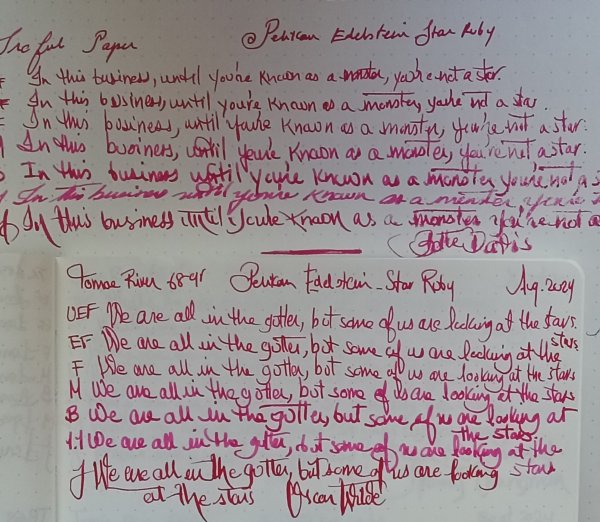 Paper Pelikan Edelstein Star Ruby
In this business, until you're known as a monster, you're not a star.
In this business, until you're known as a monster, you're not a star.
F In this business, until you're known as a monster, you're not a star.
M In this business, until you're known as a monster, you're not a star.
B In this business until you're known as a monster you're not a
In this business until you're known as a monster you're
In this business until you're known as a monster you're not a
Bette Davis
Tomoe River 68-gr Pelikan Edelstein - Star Ruby Aug. 2024
UEF We are all in the gutter, but some of us are looking at the stars.
EF We are all in the gutter, but some of us are looking at the stars
F We are all in the gutter, but some of us are looking at the stars
M We are all in the gutter, but some of us are looking at the stars
B We are all in the gutter, but some of us are looking at the stars
1.1 We are all in the gutter, but some of us are looking at the stars
J We are all in the gutter, but some of us are looking
at the stars Oscar Wilde